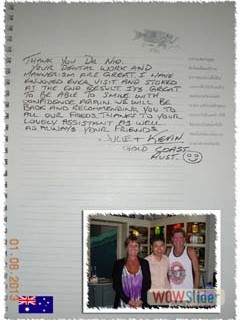 THANK YOU DR NID.
YOUR DENTAL WORK AND
MANNERISM ARE GREAT. I HAVE
ENJOYED EVER VISIT AND STOKED
AT THE END RESULT. IT'S GREAT
TO BE ABLE TO SMILE WITH
CONFIDENCE AGAIN. WE WILL BE
BACK AND RECOMMENDING YOU TO
ALL OUR FRIEDS. THANKS TO YOUR
LOVELY ASSISTANT AS WELL.
AS ALWAYS YOUR FRIENDS
JULIE + KEVIN.
GOLD COAST
AUST.
01.08.2013
WOWSlider